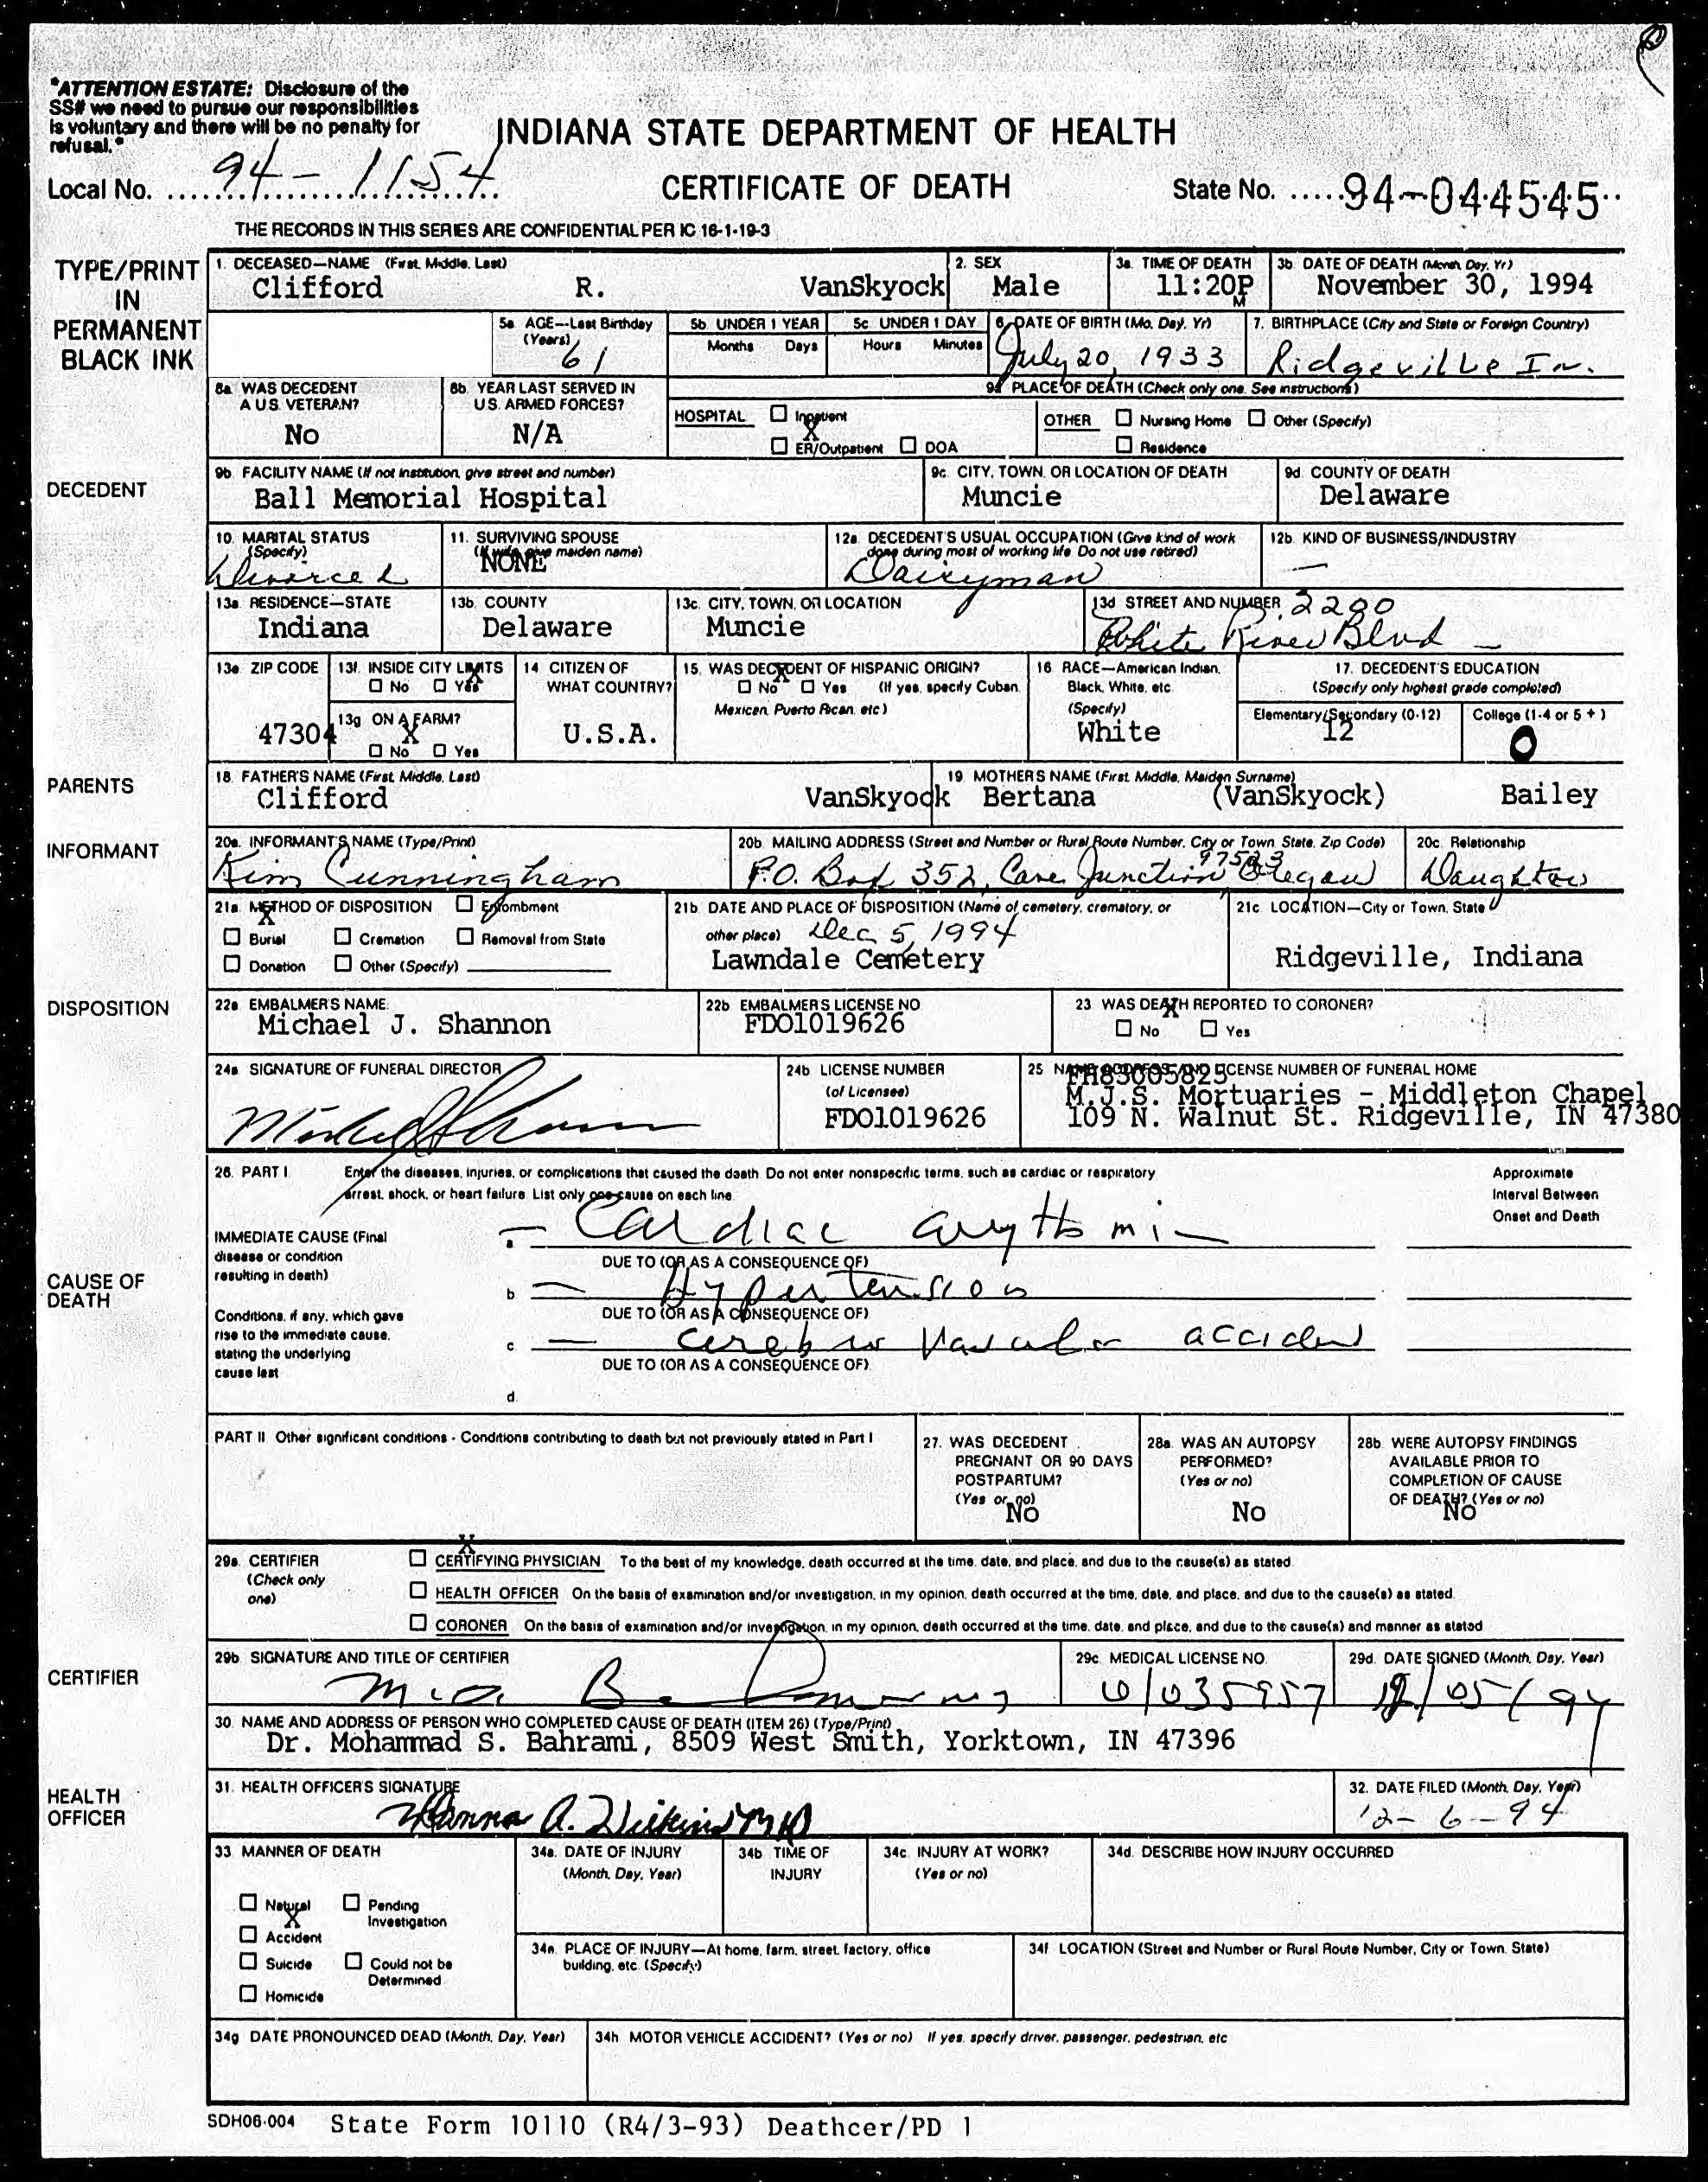 "ATTENTION ESTATE: Disclosure of the
SS# we need to pursue our responsibilities
is voluntary and there will be no penalty for
refusal."
INDIANA STATE DEPARTMENT OF HEALTH
Local No. 94-1154
CERTIFICATE OF DEATH
State No. 94-044545
THE RECORDS IN THIS SERIES ARE CONFIDENTIAL PER IC 16-1-19-3
TYPE/PRINT
IN
PERMANENT
BLACK INK
1. DECEASED—NAME (First, Middle, Last)
Clifford R. VanSkyock
2. SEX
Male
3a. TIME OF DEATH
11:20P
M
3b. DATE OF DEATH (Month, Day, Yr)
November 30, 1994
5a. AGE—Last Birthday
(Years)
61
5b. UNDER 1 YEAR
Months Days
5c. UNDER 1 DAY
Hours Minutes
6. DATE OF BIRTH (Mo, Day, Yr)
July 20, 1933
7. BIRTHPLACE (City and State or Foreign Country)
Ridgeville In.
8a. WAS DECEDENT
A U.S. VETERAN?
No
8b. YEAR LAST SERVED IN
U.S. ARMED FORCES?
N/A
9a. PLACE OF DEATH (Check only one. See instructions)
HOSPITAL ☐ Inpatient
X
☐ ER/Outpatient ☐ DOA
OTHER ☐ Nursing Home ☐ Other (Specify)
☐ Residence
DECEDENT
9b. FACILITY NAME (If not institution, give street and number)
Ball Memorial Hospital
9c. CITY, TOWN, OR LOCATION OF DEATH
Muncie
9d. COUNTY OF DEATH
Delaware
10. MARITAL STATUS
(Specify)
Divorced
11. SURVIVING SPOUSE
(If wife, give maiden name)
NONE
12a. DECEDENT'S USUAL OCCUPATION (Give kind of work
done during most of working life. Do not use retired)
Dairyman
12b. KIND OF BUSINESS/INDUSTRY
—
13a. RESIDENCE—STATE
Indiana
13b. COUNTY
Delaware
13c. CITY, TOWN, OR LOCATION
Muncie
13d. STREET AND NUMBER 2200
White River Blvd —
13e. ZIP CODE
47304
13f. INSIDE CITY LIMITS
☐ No ☐ Yes
X
13g. ON A FARM?
X
☐ No ☐ Yes
14. CITIZEN OF
WHAT COUNTRY?
U.S.A.
15. WAS DECEDENT OF HISPANIC ORIGIN?
X
☐ No ☐ Yes (If yes, specify Cuban,
Mexican, Puerto Rican, etc.)
16. RACE—American Indian,
Black, White, etc.
(Specify)
White
17. DECEDENT'S EDUCATION
(Specify only highest grade completed)
Elementary/Secondary (0-12)
12
College (1-4 or 5 +)
0
PARENTS
18. FATHER'S NAME (First, Middle, Last)
Clifford VanSkyock
19. MOTHER'S NAME (First, Middle, Maiden Surname)
Bertana (VanSkyock) Bailey
INFORMANT
20a. INFORMANT'S NAME (Type/Print)
Kim Cunningham
20b. MAILING ADDRESS (Street and Number or Rural Route Number, City or Town, State, Zip Code)
97523
P.O. Box 352, Cave Junction Oregon
20c. Relationship
Daughter
21a. METHOD OF DISPOSITION ☐ Entombment
X
☐ Burial ☐ Cremation ☐ Removal from State
☐ Donation ☐ Other (Specify)
21b. DATE AND PLACE OF DISPOSITION (Name of cemetery, crematory, or
other place) Dec 5, 1994
Lawndale Cemetery
21c. LOCATION—City or Town, State
Ridgeville, Indiana
DISPOSITION
22a. EMBALMER'S NAME:
Michael J. Shannon
22b. EMBALMER'S LICENSE NO
FDO1019626
23. WAS DEATH REPORTED TO CORONER?
X
☐ No ☐ Yes
24a. SIGNATURE OF FUNERAL DIRECTOR
24b. LICENSE NUMBER
(of Licensee)
FDO1019626
25. NAME, ADDRESS, AND LICENSE NUMBER OF FUNERAL HOME
FH83005825
M.J.S. Mortuaries - Middleton Chapel
109 N. Walnut St. Ridgeville, IN 47380
26. PART I. Enter the diseases, injuries, or complications that caused the death. Do not enter nonspecific terms, such as cardiac or respiratory
arrest, shock, or heart failure. List only one cause on each line.
Approximate
Interval Between
Onset and Death
CAUSE OF
DEATH
IMMEDIATE CAUSE (Final
disease or condition
resulting in death)
a. — Cardiac arythmi
DUE TO (OR AS A CONSEQUENCE OF)
b — Hypertension
DUE TO (OR AS A CONSEQUENCE OF)
Conditions, if any, which gave
rise to the immediate cause,
stating the underlying
cause last
c — cerebro vascular accident
DUE TO (OR AS A CONSEQUENCE OF)
d.
PART II. Other significant conditions - Conditions contributing to death but not previously stated in Part I
27. WAS DECEDENT
PREGNANT OR 90 DAYS
POSTPARTUM?
(Yes or no)
No
28a. WAS AN AUTOPSY
PERFORMED?
(Yes or no)
No
28b. WERE AUTOPSY FINDINGS
AVAILABLE PRIOR TO
COMPLETION OF CAUSE
OF DEATH? (Yes or no)
No
29a. CERTIFIER
(Check only
one)
X
☐ CERTIFYING PHYSICIAN To the best of my knowledge, death occurred at the time, date, and place, and due to the cause(s) as stated.
☐ HEALTH OFFICER On the basis of examination and/or investigation, in my opinion, death occurred at the time, date, and place, and due to the cause(s) as stated.
☐ CORONER On the basis of examination and/or investigation, in my opinion, death occurred at the time, date, and place, and due to the cause(s) and manner as stated
CERTIFIER
29b. SIGNATURE AND TITLE OF CERTIFIER
29c. MEDICAL LICENSE NO.
01035957
29d. DATE SIGNED (Month, Day, Year)
12/05/94
30. NAME AND ADDRESS OF PERSON WHO COMPLETED CAUSE OF DEATH (ITEM 26) (Type/Print)
Dr. Mohammad S. Bahrami, 8509 West Smith, Yorktown, IN 47396
HEALTH
OFFICER
31. HEALTH OFFICER'S SIGNATURE
A. Wilkins MD
32. DATE FILED (Month, Day, Year)
12-6-94
33. MANNER OF DEATH
☐ Natural ☐ Pending
Investigation
X
☐ Accident
☐ Suicide ☐ Could not be
Determined
☐ Homicide
34a. DATE OF INJURY
(Month, Day, Year)
34b. TIME OF
INJURY
34c. INJURY AT WORK?
(Yes or no)
34d. DESCRIBE HOW INJURY OCCURRED
34e. PLACE OF INJURY—At home, farm, street, factory, office
building, etc. (Specify)
34f. LOCATION (Street and Number or Rural Route Number, City or Town, State)
34g. DATE PRONOUNCED DEAD (Month, Day, Year)
34h. MOTOR VEHICLE ACCIDENT? (Yes or no) If yes, specify driver, passenger, pedestrian, etc
SDH06-004 State Form 10110 (R4/3-93) Deathcer/PD 1